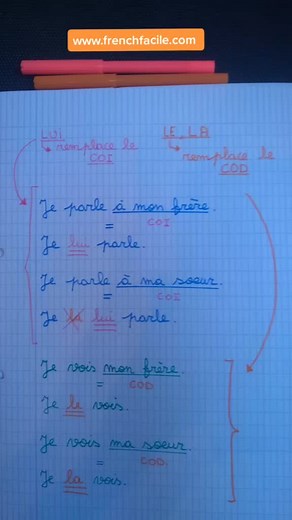 www.frenchfacile.com
LUI
remplace le
COI
LE, LA
remplace le
COD
Je parle à mon frère.
= COI
Je lui parle.
Je parle à ma soeur.
= COI
Je la lui parle.
Je vois mon frère.
= COD
Je le vois.
Je vois ma soeur.
= COD.
Je la vois.